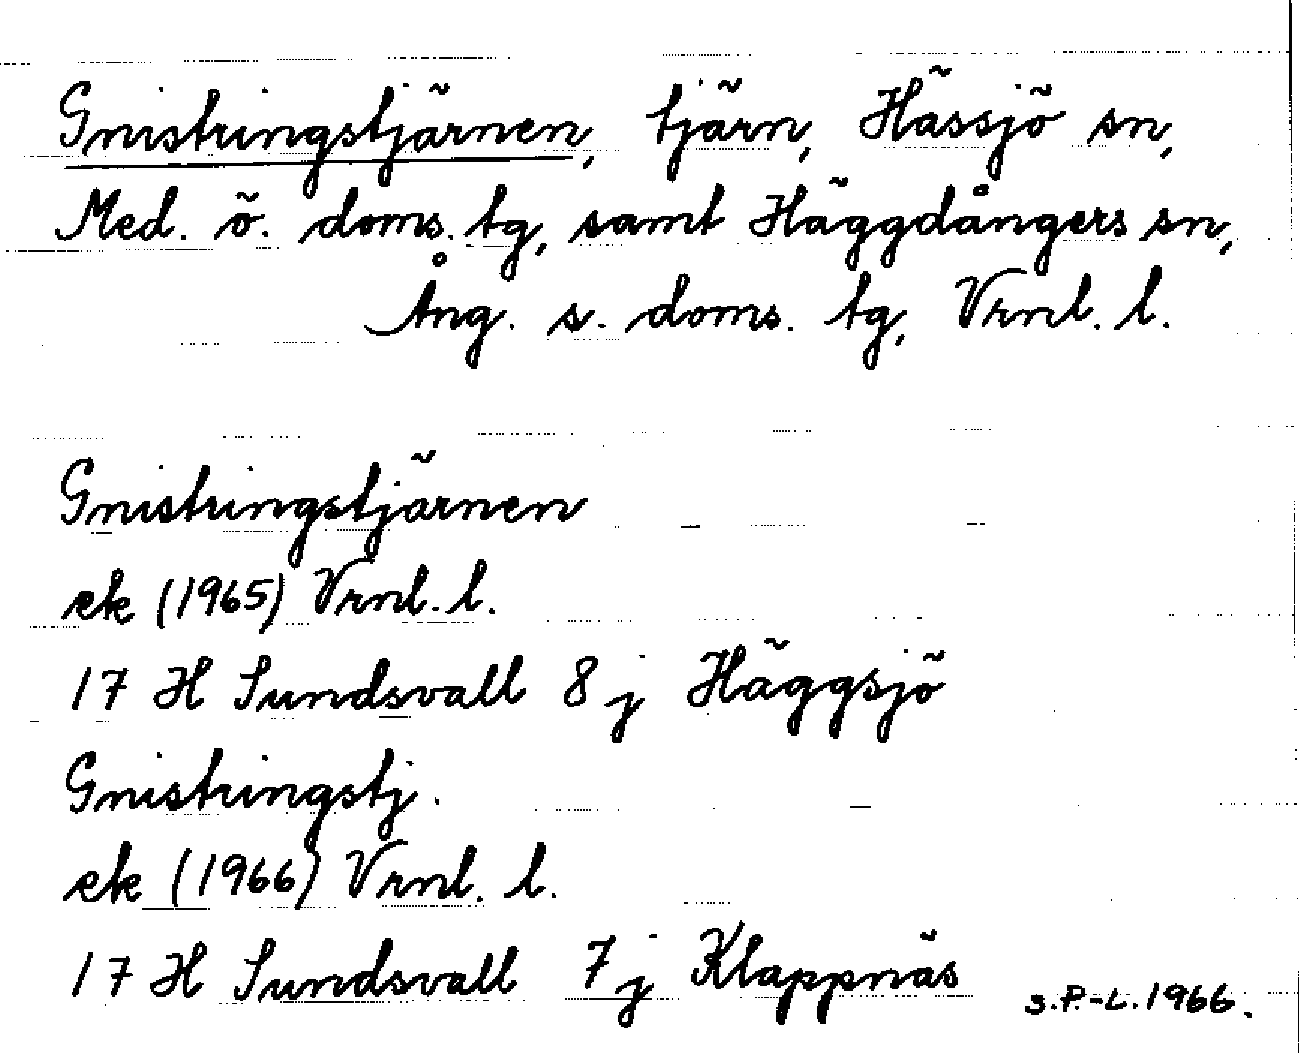 Gnistringstjärnen, tjärn, Hässjö sn,
Med. ö. doms. tg, samt Häggdångers sn,
Ång. s. doms. tg, Vrnl. l.
Gnistringstjärnen
ek (1965) Vrnl. l.
17 H Sundsvall 8 j Häggsjö
Gnistringstj.
ek (1966) Vrnl. l.
17 H Sundsvall 7 j Klappnäs
S.P.-L. 1966.